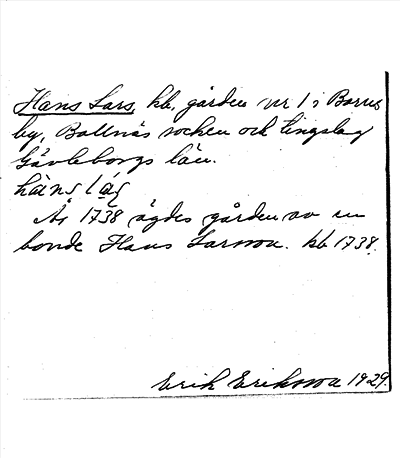 Hans Lars, kb, gården nr 1 i Barne
by, Bollnäs socken och tingslag
Gävleborgs län.
År 1738 ägdes gården av en
bonde Hans Larsson. kb 1738.
Erik Eriksson 1929.